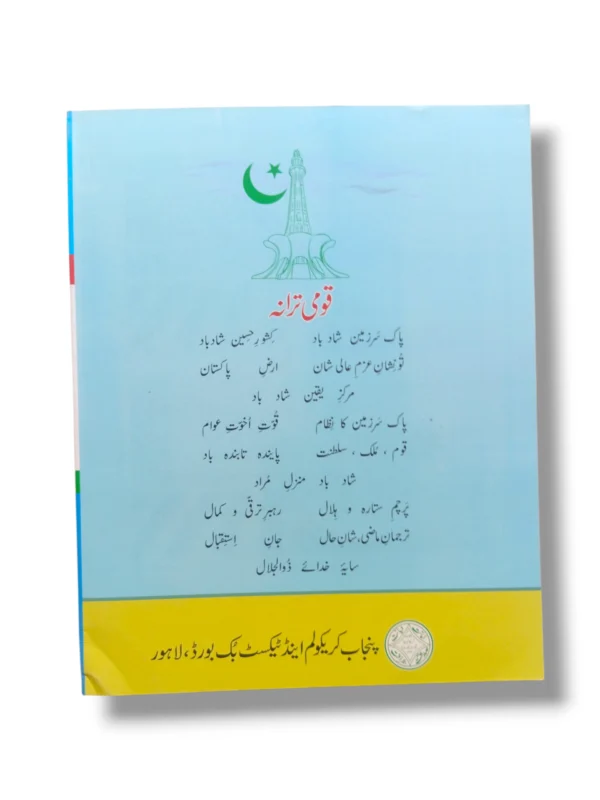 قومی ترانہ
پاک سَرزمین شاد باد کِشورِ حسین شاد باد
تُو نِشانِ عزمِ عالی شان ارضِ پاکستان
مرکزِ یقین شاد باد
پاک سَرزمین کا نظام قُوّتِ اُخوّتِ عوام
قوم ، مُلک ، سلطنت پایندہ تابندہ باد
شاد باد منزلِ مُراد
پرچمِ ستارہ و ہِلال رہبرِ ترقّی و کمال
ترجمانِ ماضی، شانِ حال جانِ اِستِقبال
سایۂ خدائے ذُوالجلال
پنجاب کریکولم اینڈ ٹیکسٹ بُک بورڈ، لاہور